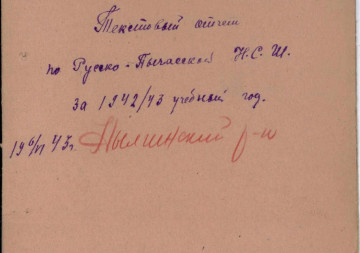 Текстовый отчет
по Русско-Пычасской Н.С.Ш.
за 1942/43 учебный год.
19 6/VI 43 г.
Пычинский р-н